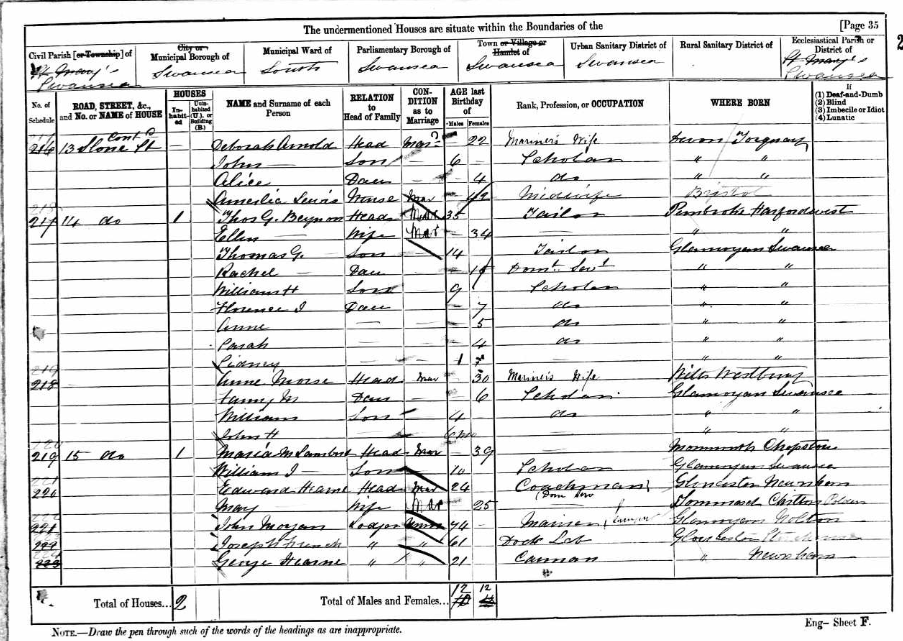 The undermentioned Houses are situate within the Boundaries of the [Page 35
2
Civil Parish [or Township] of City or Municipal Borough of Municipal Ward of Parliamentary Borough of Town or Village or Hamlet of Urban Sanitary District of Rural Sanitary District of Ecclesiastical Parish or District of
St Mary's Swansea Swansea South Swansea Swansea Swansea St Mary's Swansea
No. of Schedule ROAD, STREET, &c., and No. or NAME of HOUSE HOUSES In-habit-ed Un-inhabited (U.), or Building (B.) NAME and Surname of each Person RELATION to Head of Family CON-DITION as to Marriage AGE last Birthday of Males Females Rank, Profession, or OCCUPATION WHERE BORN If (1) Deaf-and-Dumb (2) Blind (3) Imbecile or Idiot (4) Lunatic
216 13 Stone St Contd Deborah Arnold Head Mar 22 Mariner's Wife Devon Torquay
John Son 6 Scholar " "
Alice Daur 4 do " "
Amelia Lewis Nurse Mar Midwife Bristol
217 14 do 1 Thos G. Beynon Head 35 Tailor Pembroke
Ellen Wife Mar 34 " "
Thomas G Son 14 Tailor Glamorgan Swansea
Rachel Dau Domc Servt " "
William H Son 9 Scholar " "
Florence I Daur 7 do " "
Anne 5 do " "
Sarah 4 do " "
Sidney 1 " "
218 Anne Morse Head Mar 30 Mariner's Wife Wilts Westbury
Fanny M Daur 6 Scholar Glamorgan Swansea
William Son 4 do " "
John H 6 mo " "
219 15 do 1 Maria M Lambert Head Mar 39 Monmouth Chepstow
William J Son 10 Scholar Glamorgan Swansea
220 Edward Hearne Head Mar 24 Coachman Gloucester Newnham
Mary Wife Mar 25 Dom Serv
221 John Morgan Lodger 74 Mariner Glamorgan
222 Joseph " " 61 Dock Lab Gloucester
223 George Hearne " " 21 Carman " Newnham
Total of Houses... 2 Total of Males and Females... 12 12
NOTE.—Draw the pen through such of the words of the headings as are inappropriate. Eng— Sheet F.